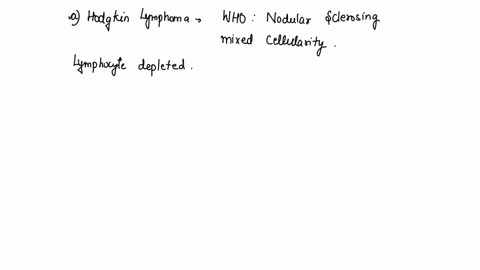 a) Hodgkin Lymphoma → WHO : Nodular Sclerosing
mixed Cellularity.
Lymphocyte depleted.